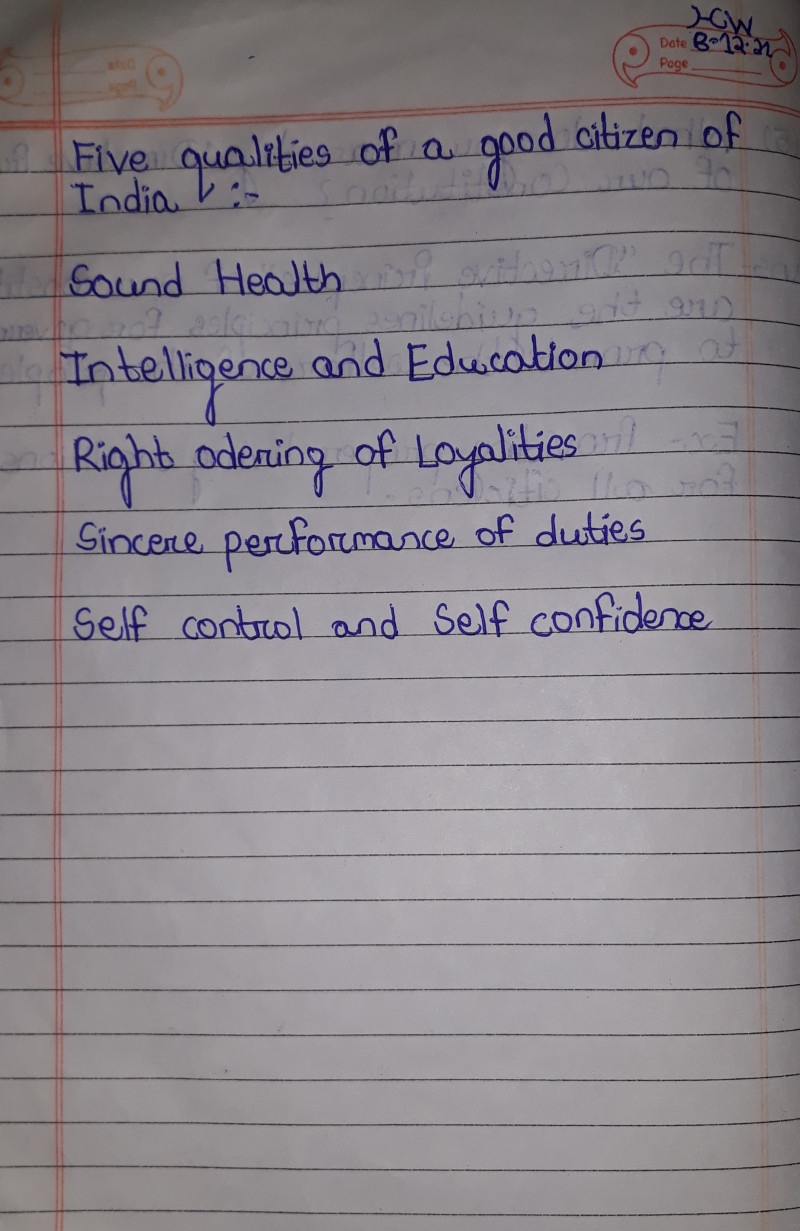 H.W
Date 8-12-21
Page
Five qualities of a good citizen of
India :-
Sound Health
Intelligence and Education
Right odering of Loyalities
Sincere performance of duties
Self control and Self confidence